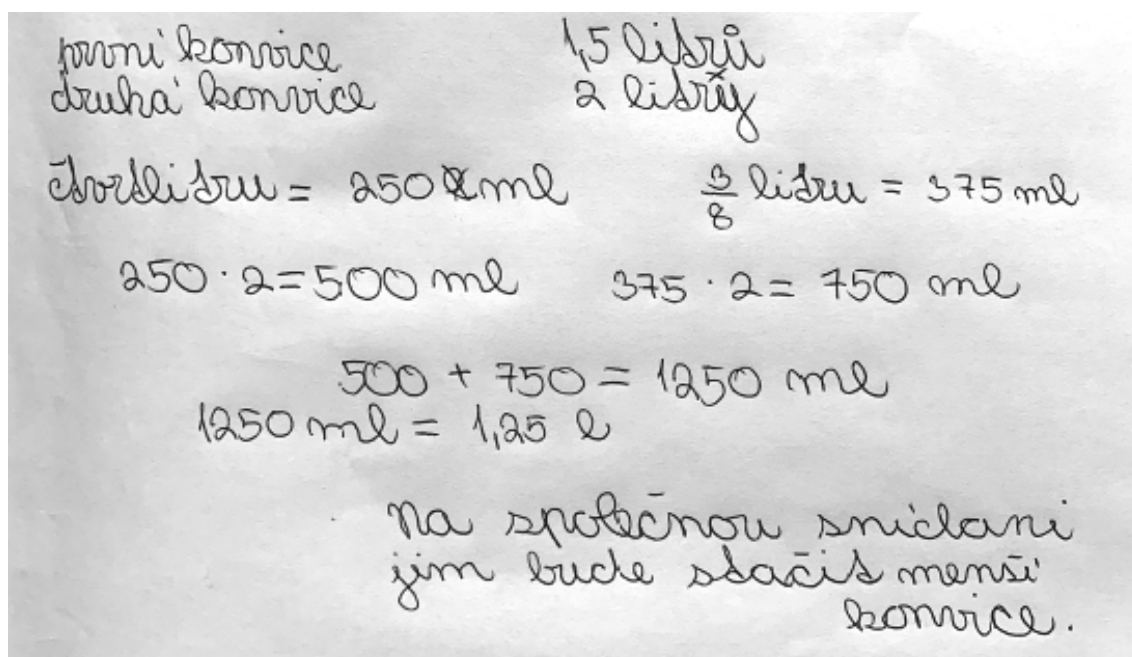 první konvice 1,5 litrů
druhá konvice 2 litry
čtvrtlitru = 250 ml 3/8 litru = 375 ml
250 · 2 = 500 ml 375 · 2 = 750 ml
500 + 750 = 1250 ml
1250 ml = 1,25 l
Na společnou snídani
jim bude stačit menší
konvice.